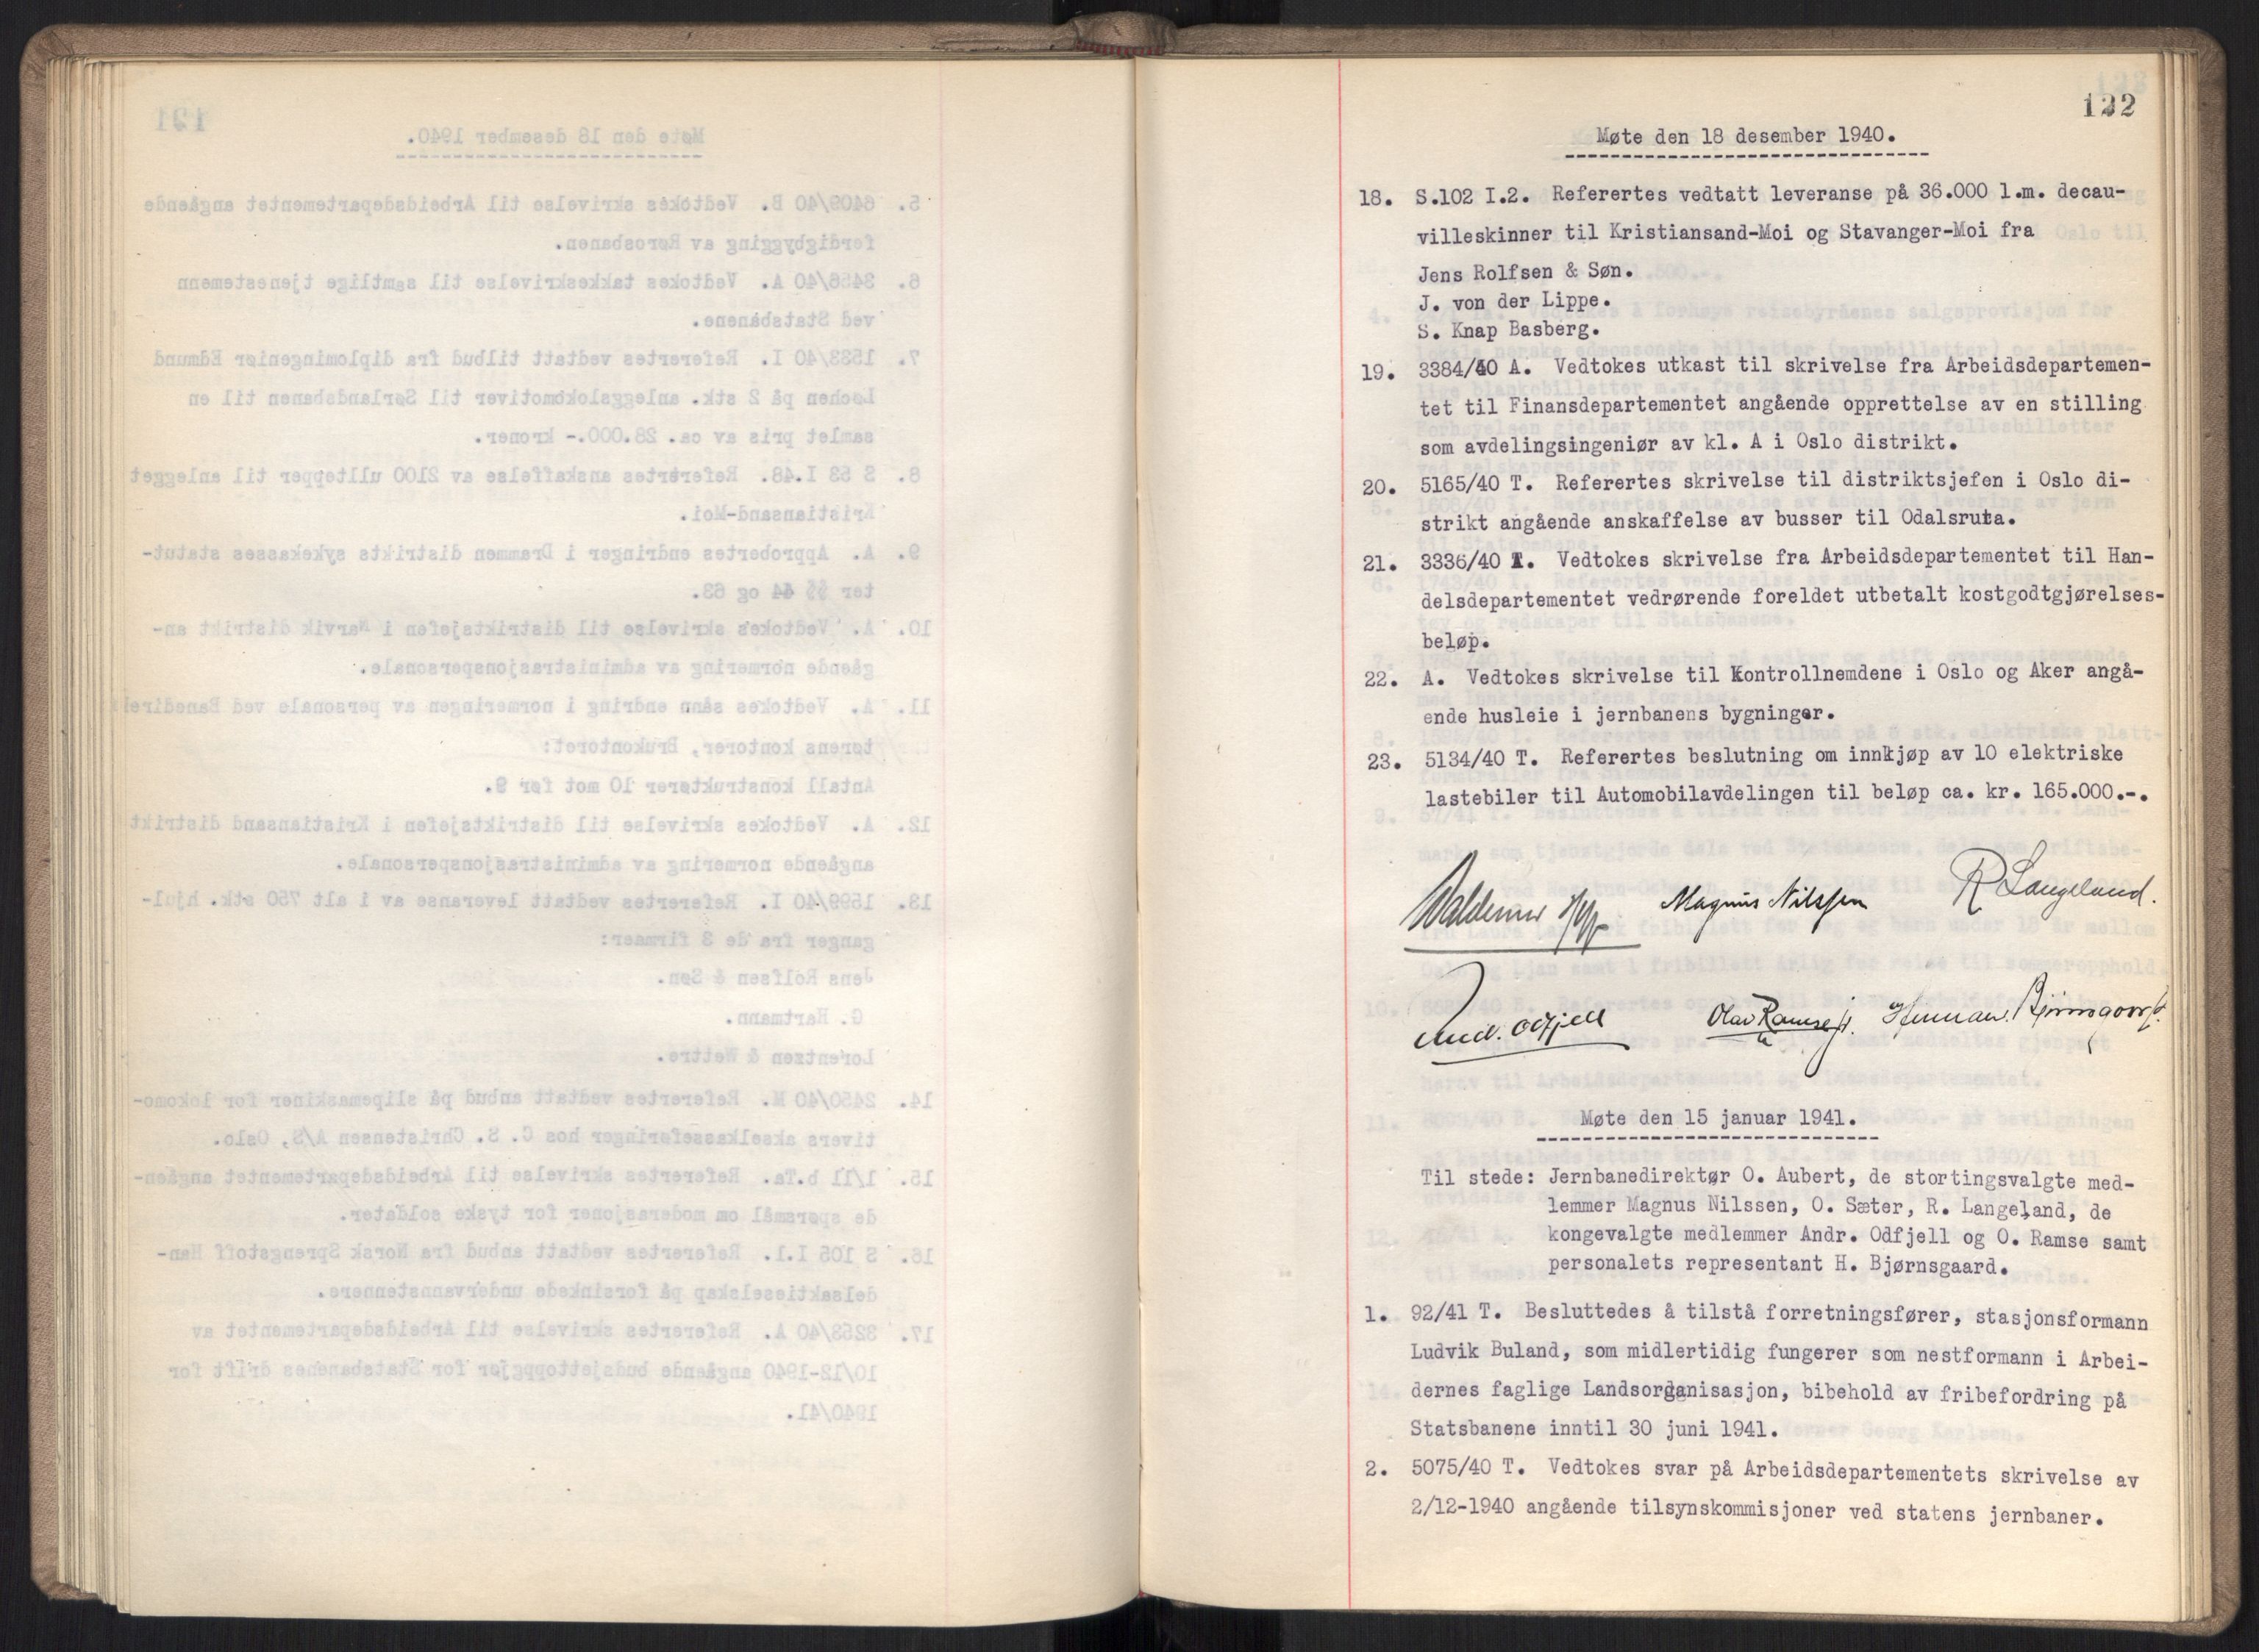 122
Møte den 18 desember 1940.
18. S.102 I.2. Referertes vedtatt leveranse på 36.000 l.m. decau-
villeskinner til Kristiansand-Moi og Stavanger-Moi fra
Jens Rolfsen & Søn.
J. von der Lippe.
S. Knap Basberg.
19. 3384/40 A. Vedtokes utkast til skrivelse fra Arbeidsdepartemen-
tet til Finansdepartementet angående opprettelse av en stilling
som avdelingsingeniør av kl. A i Oslo distrikt.
20. 5165/40 T. Referertes skrivelse til distriktsjefen i Oslo di-
strikt angående anskaffelse av busser til Odalsruta.
21. 3336/40 T. Vedtokes skrivelse fra Arbeidsdepartementet til Han-
delsdepartementet vedrørende foreldet utbetalt kostgodtgjørelses-
beløp.
22. A. Vedtokes skrivelse til Kontrollnemdene i Oslo og Aker angå-
ende husleie i jernbanens bygninger.
23. 5134/40 T. Referertes beslutning om innkjøp av 10 elektriske
lastebiler til Automobilavdelingen til beløp ca. kr. 165.000.-.
Magnus Nilssen R Langeland.
And. Odfjell Olav Ramse Herman Bjørnsgaard
Møte den 15 januar 1941.
Til stede: Jernbanedirektør O. Aubert, de stortingsvalgte med-
lemmer Magnus Nilssen, O. Sæter, R. Langeland, de
kongevalgte medlemmer Andr. Odfjell og O. Ramse samt
personalets representant H. Bjørnsgaard.
1. 92/41 T. Besluttedes å tilstå forretningsfører, stasjonsformann
Ludvik Buland, som midlertidig fungerer som nestformann i Arbei-
dernes faglige Landsorganisasjon, bibehold av fribefordring på
Statsbanene inntil 30 juni 1941.
2. 5075/40 T. Vedtokes svar på Arbeidsdepartementets skrivelse av
2/12-1940 angående tilsynskommisjoner ved statens jernbaner.